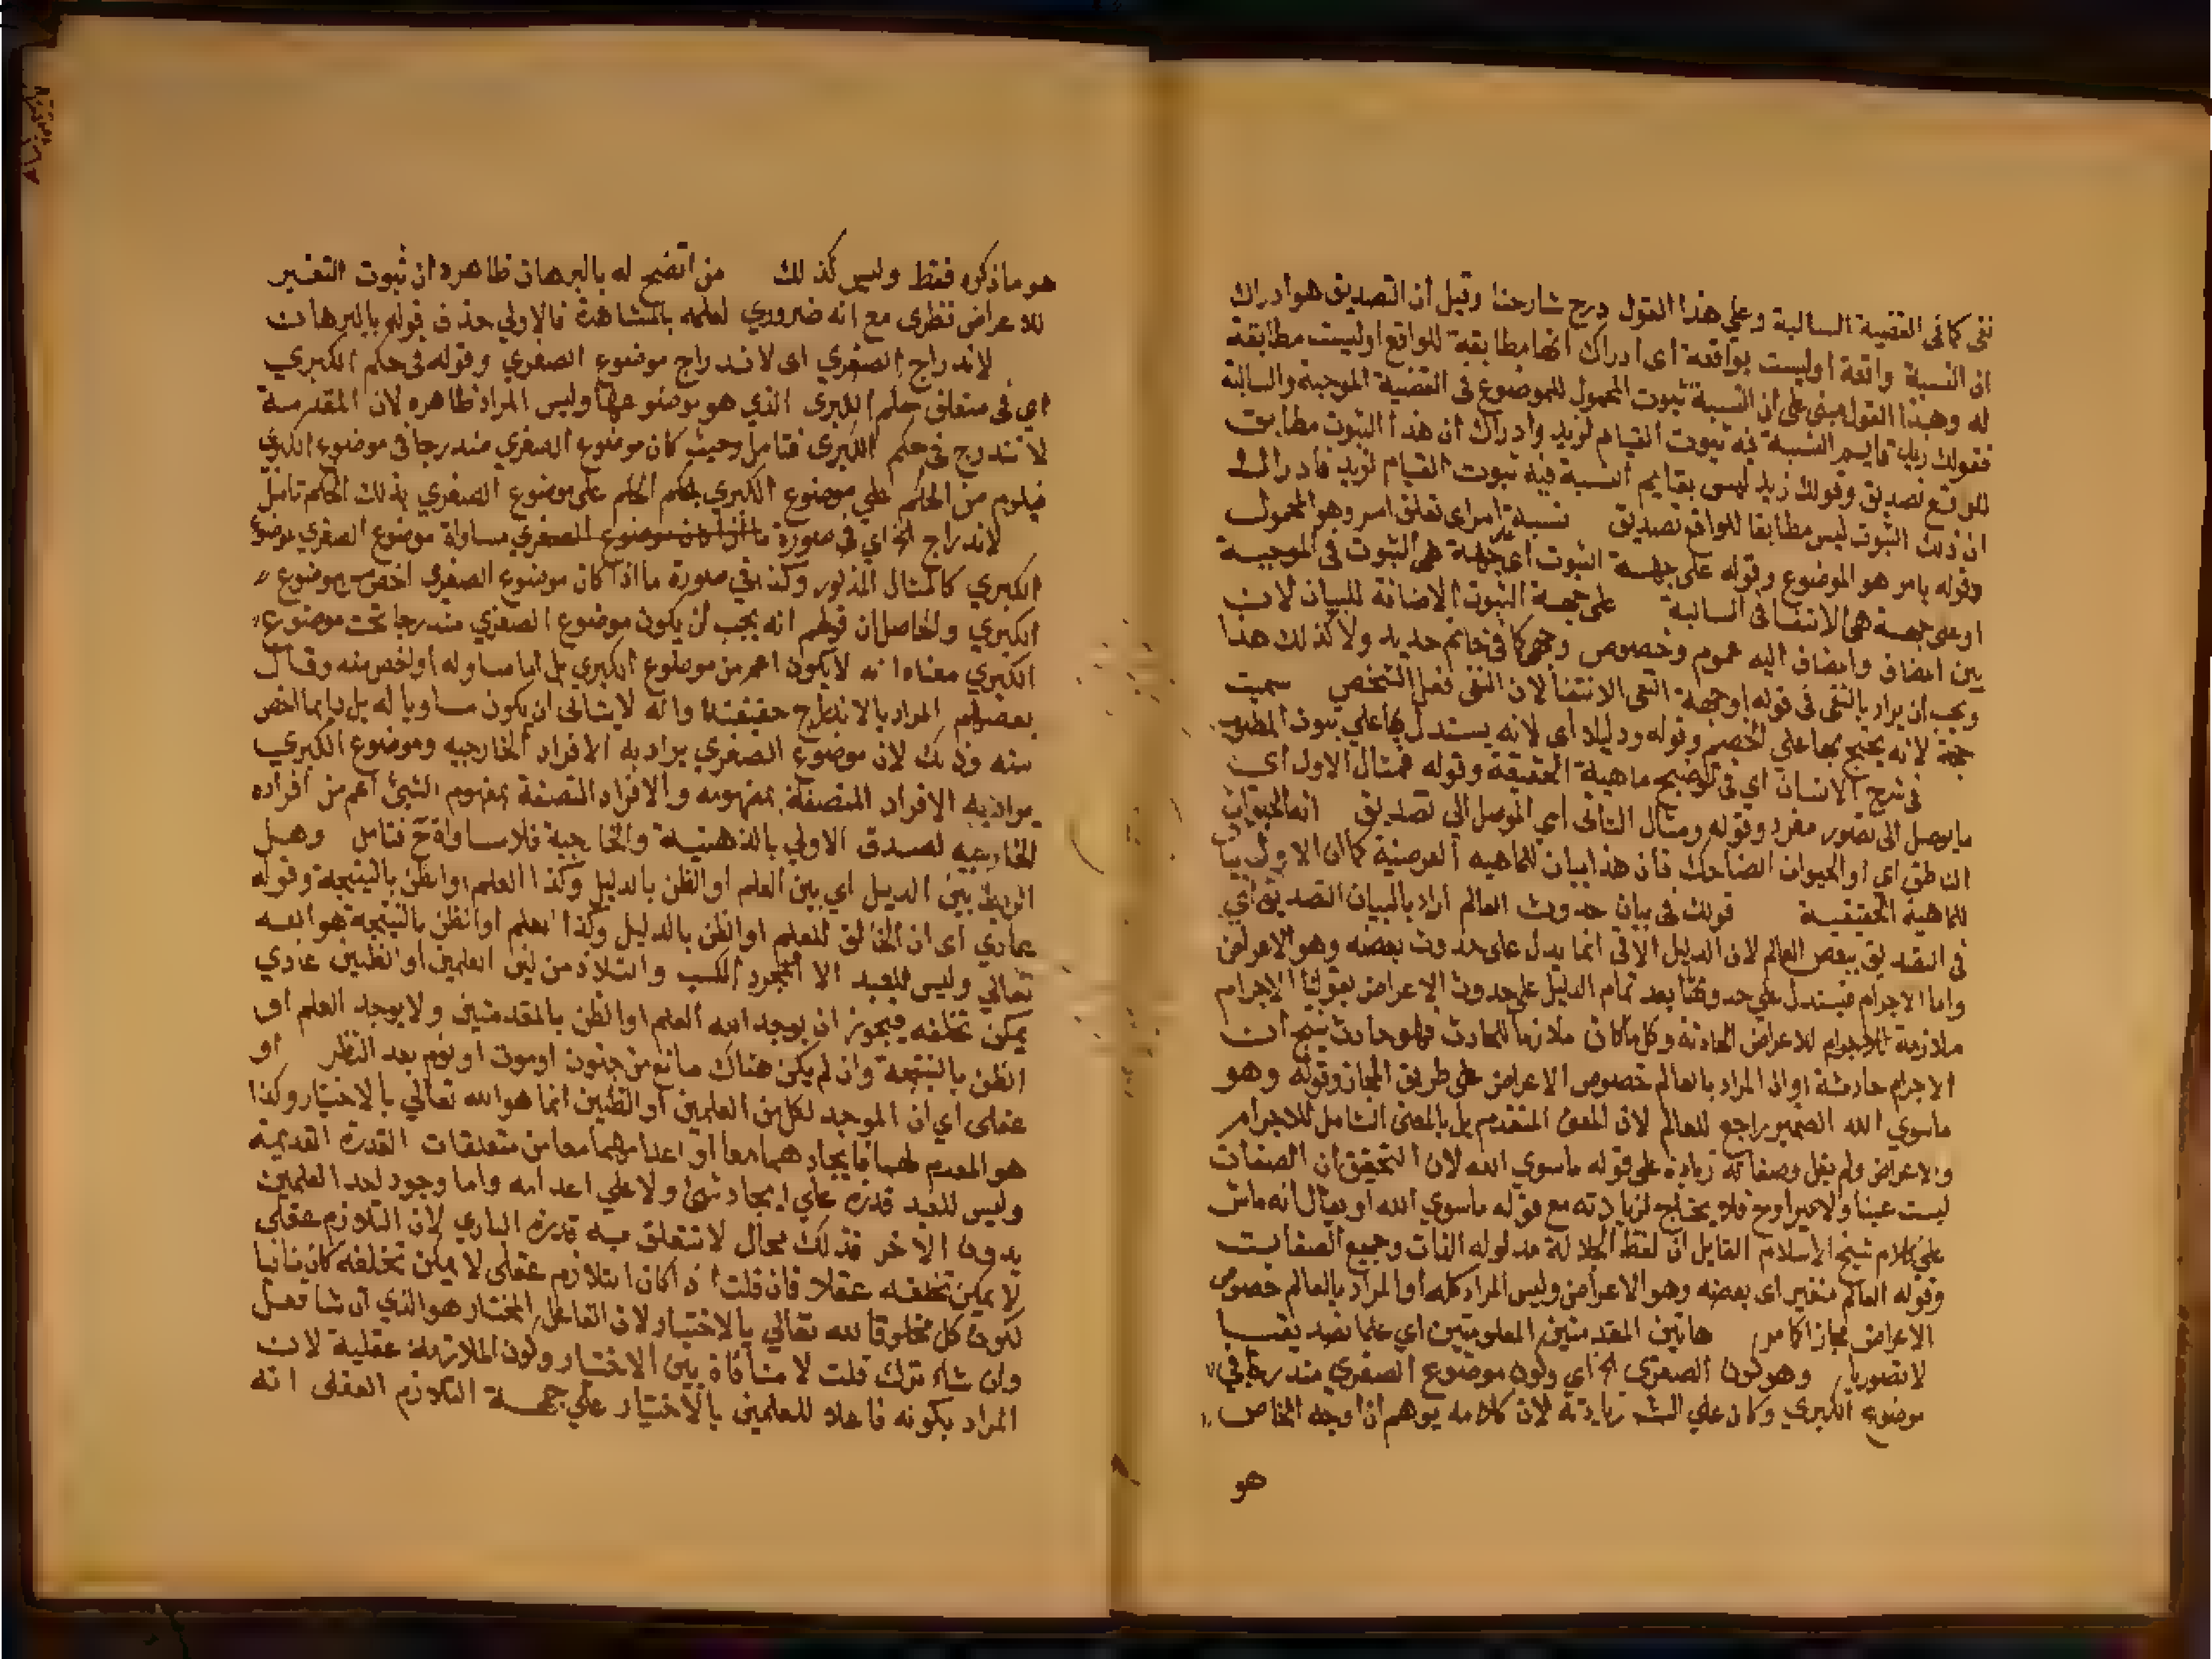 نفى كما في القضية السالبة وعلى هذا القول درج شارحنا وقيل ان التصديق هو ادراك
ان النسبة واقعة او ليست بواقعة اى ادراك انها مطابقة للواقع او ليست مطابقة
له وهذا القول مبنى على ان النسبة ثبوت المحمول للموضوع في القضية الموجبة والسالبة
فقولك زيد قايم النسبة فيه ثبوت القيام لزيد وادراك ان هذا الثبوت مطابق
للواقع تصديق وقولك زيد ليس بقايم النسبة فيه ثبوت القيام لزيد فادراك
ان ذلك الثبوت ليس مطابقا للواقع تصديق نسبة امر اى تعلق امر وهو المحمول
وقوله بامر هو الموضوع وقوله على جهة الثبوت اى جهة هى الثبوت في الموجبة
او على جهة هى الانتفا في السالبة على جهة الثبوت الاضافة للبيان لان
بين المضاف والمضاف اليه عموم وخصوص وجهى كما في خاتم حديد ولا كذلك هذا
ويجب ان يراد بالنفى في قوله او جهة النفى الانتفا لان النفى فعل الشخص سميت
حجة لانه يحتج بها على الخصم وقوله ودليلا اى لانه يستدل بها على ثبوت المطلوب
في شرح الانسان اي في توضيح ماهية الحقيقة وقوله فمثال الاول اي
ما يوصل الى تصور مفرد وقوله ومثال الثاني اي الموصل الى تصديق انه الحيوان
الناطق اي او الحيوان الضاحك فان هذا بيان للماهيه العرضية كما ان الاول
للماهية الحقيقية قولك في بيان حدوث العالم اراد بالبيان التصديق اي
في التصديق ببعض العالم لان الدليل الاتى انما يدل على حدوث بعضه وهو الاعراض
واما الاجرام فيستدل على حدوثها بعد تمام الدليل على حدوث الاعراض بقولنا الاجرام
ملازمة للاعراض الحادثة وكل ما كان ملازما للحادث فهو حادث ينتج ان
الاجرام حادثة او ان المراد بالعالم خصوص الاعراض على طريق المجاز وقوله وهو
ماسوي الله الضمير راجع للعالم لان المعنى المتقدم بل بالمعنى الشامل للاجرام
والاعراض ولم يقل وصفاته زيادة على قوله ماسوي الله لان التحقيق ان الصفات
ليست عينا ولا غيرا وح فلا يحتاج لزيادته مع قوله ماسوي الله او يقال انه ماش
على كلام شيخ الاسلام القايل ان لفظ الجلالة مدلوله الذات وجميع الصفات
وقوله العالم متغير اى بعضه وهو الاعراض وليس المراد كله او المراد بالعالم خصوص
الاعراض مجازا كما مر هاتين المقدمتين المعلومتين اي علما تصديقيا
لا تصوريا وهو كون الصغرى الخ اي وكون موضوع الصغري مندرجا في
موضوع الكبري وكان على الش زيادته لان كلامه يوهم ان اوجه الخاص
هو
هو ماذكره فقط وليس كذلك من اتضح له بالبرهان ظاهره ان ثبوت التغير
للاعراض نظرى مع انه ضروري لعلمه بالمشاهدة فالاولي حذف قوله بالبرهان
لاندراج الصغري اى لاندراج موضوع الصغري وقوله في حكم الكبري
اي في متعلق حكم الكبرى الذي هو موضوعها وليس المراد ظاهره لان المقدمة
لا تندرج في حكم الكبرى فتامل وحيث كان موضوع الصغري مندرجا في موضوع الكبري
فيلزم من الحكم على موضوع الكبري بحكم الحكم على موضوع الصغري بذلك الحكم تامل
لاندراج الخ اي في صورة ما اذا كان موضوع الصغري مساواة موضوع الصغري موضوع
الكبري كالمثال المذكور وكذا في صورة ما اذا كان موضوع الصغري اخص من موضوع
الكبري والحاصل ان قولهم انه يجب ان يكون موضوع الصغري مندرجا تحت موضوع
الكبري معناه انه لا يكون اعم من موضوع الكبري بل اما مساو له او اخص منه وقال
بعضهم المراد بالاندراج حقيقته وانه لا يتاتى ان يكون مساويا له بل دايما اخص
منه وذلك لان موضوع الصغري يراد به الافراد الخارجيه وموضوع الكبري
يراد به الافراد المتصفة بمفهومه والافراد المتصفة بمفهوم الشئ اعم من افراده
الخارجيه لصدق الاولي بالذهنية والخارجية فلا مساواة ح فتامل وهل
الربط بين الدليل اي بين العلم او الظن بالدليل وكذا العلم او الظن بالنتيجة وقوله
عادي اى ان الخالق للعلم او الظن بالدليل وكذا العلم او الظن بالنتيجة هو الله
تعالي وليس للعبد الا مجرد الكسب والتلازم بين العلمين او الظنين عادي
يمكن تخلفه فيجوز ان يوجد الله العلم او الظن بالمقدمتين ولا يوجد العلم او
الظن بالنتيجة وان لم يكن هناك مانع من جنون او موت او نوم بعد النظر او
عقلى اي ان الموجد لكل من العلمين او الظنين انما هو الله تعالي بالاختيار وكذا
هو المعدم لهما فايجادهما معا او اعدامهما معا من متعلقات القدرة القديمة
وليس للعبد قدرة على ايجاد شئ ولا على اعدامه واما وجود احد العلمين
بدون الاخر فذلك محال لا تتعلق به قدرة الباري لان التلازم عقلى
لا يمكن تخلفه عقلا فان قلت اذا كان التلازم عقلى لا يمكن تخلفه كان منافيا
لكون كل مخلوقا لله تعالي بالاختيار لان الفاعل المختار هو الذي ان شا فعل
وان شاء ترك قلت لا منافاة بين الاختيار وكون الملازمة عقلية لان
المراد بكونه فاعلا للعلمين بالاختيار على جهة التلازم العقلى انه